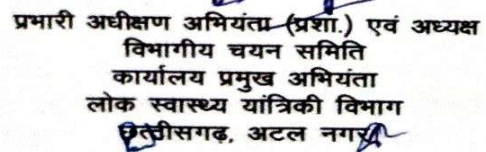 प्रभारी अधीक्षण अभियंता (प्रशा.) एवं अध्यक्ष
विभागीय चयन समिति
कार्यालय प्रमुख अभियंता
लोक स्वास्थ्य यांत्रिकी विभाग
छत्तीसगढ़, अटल नगर